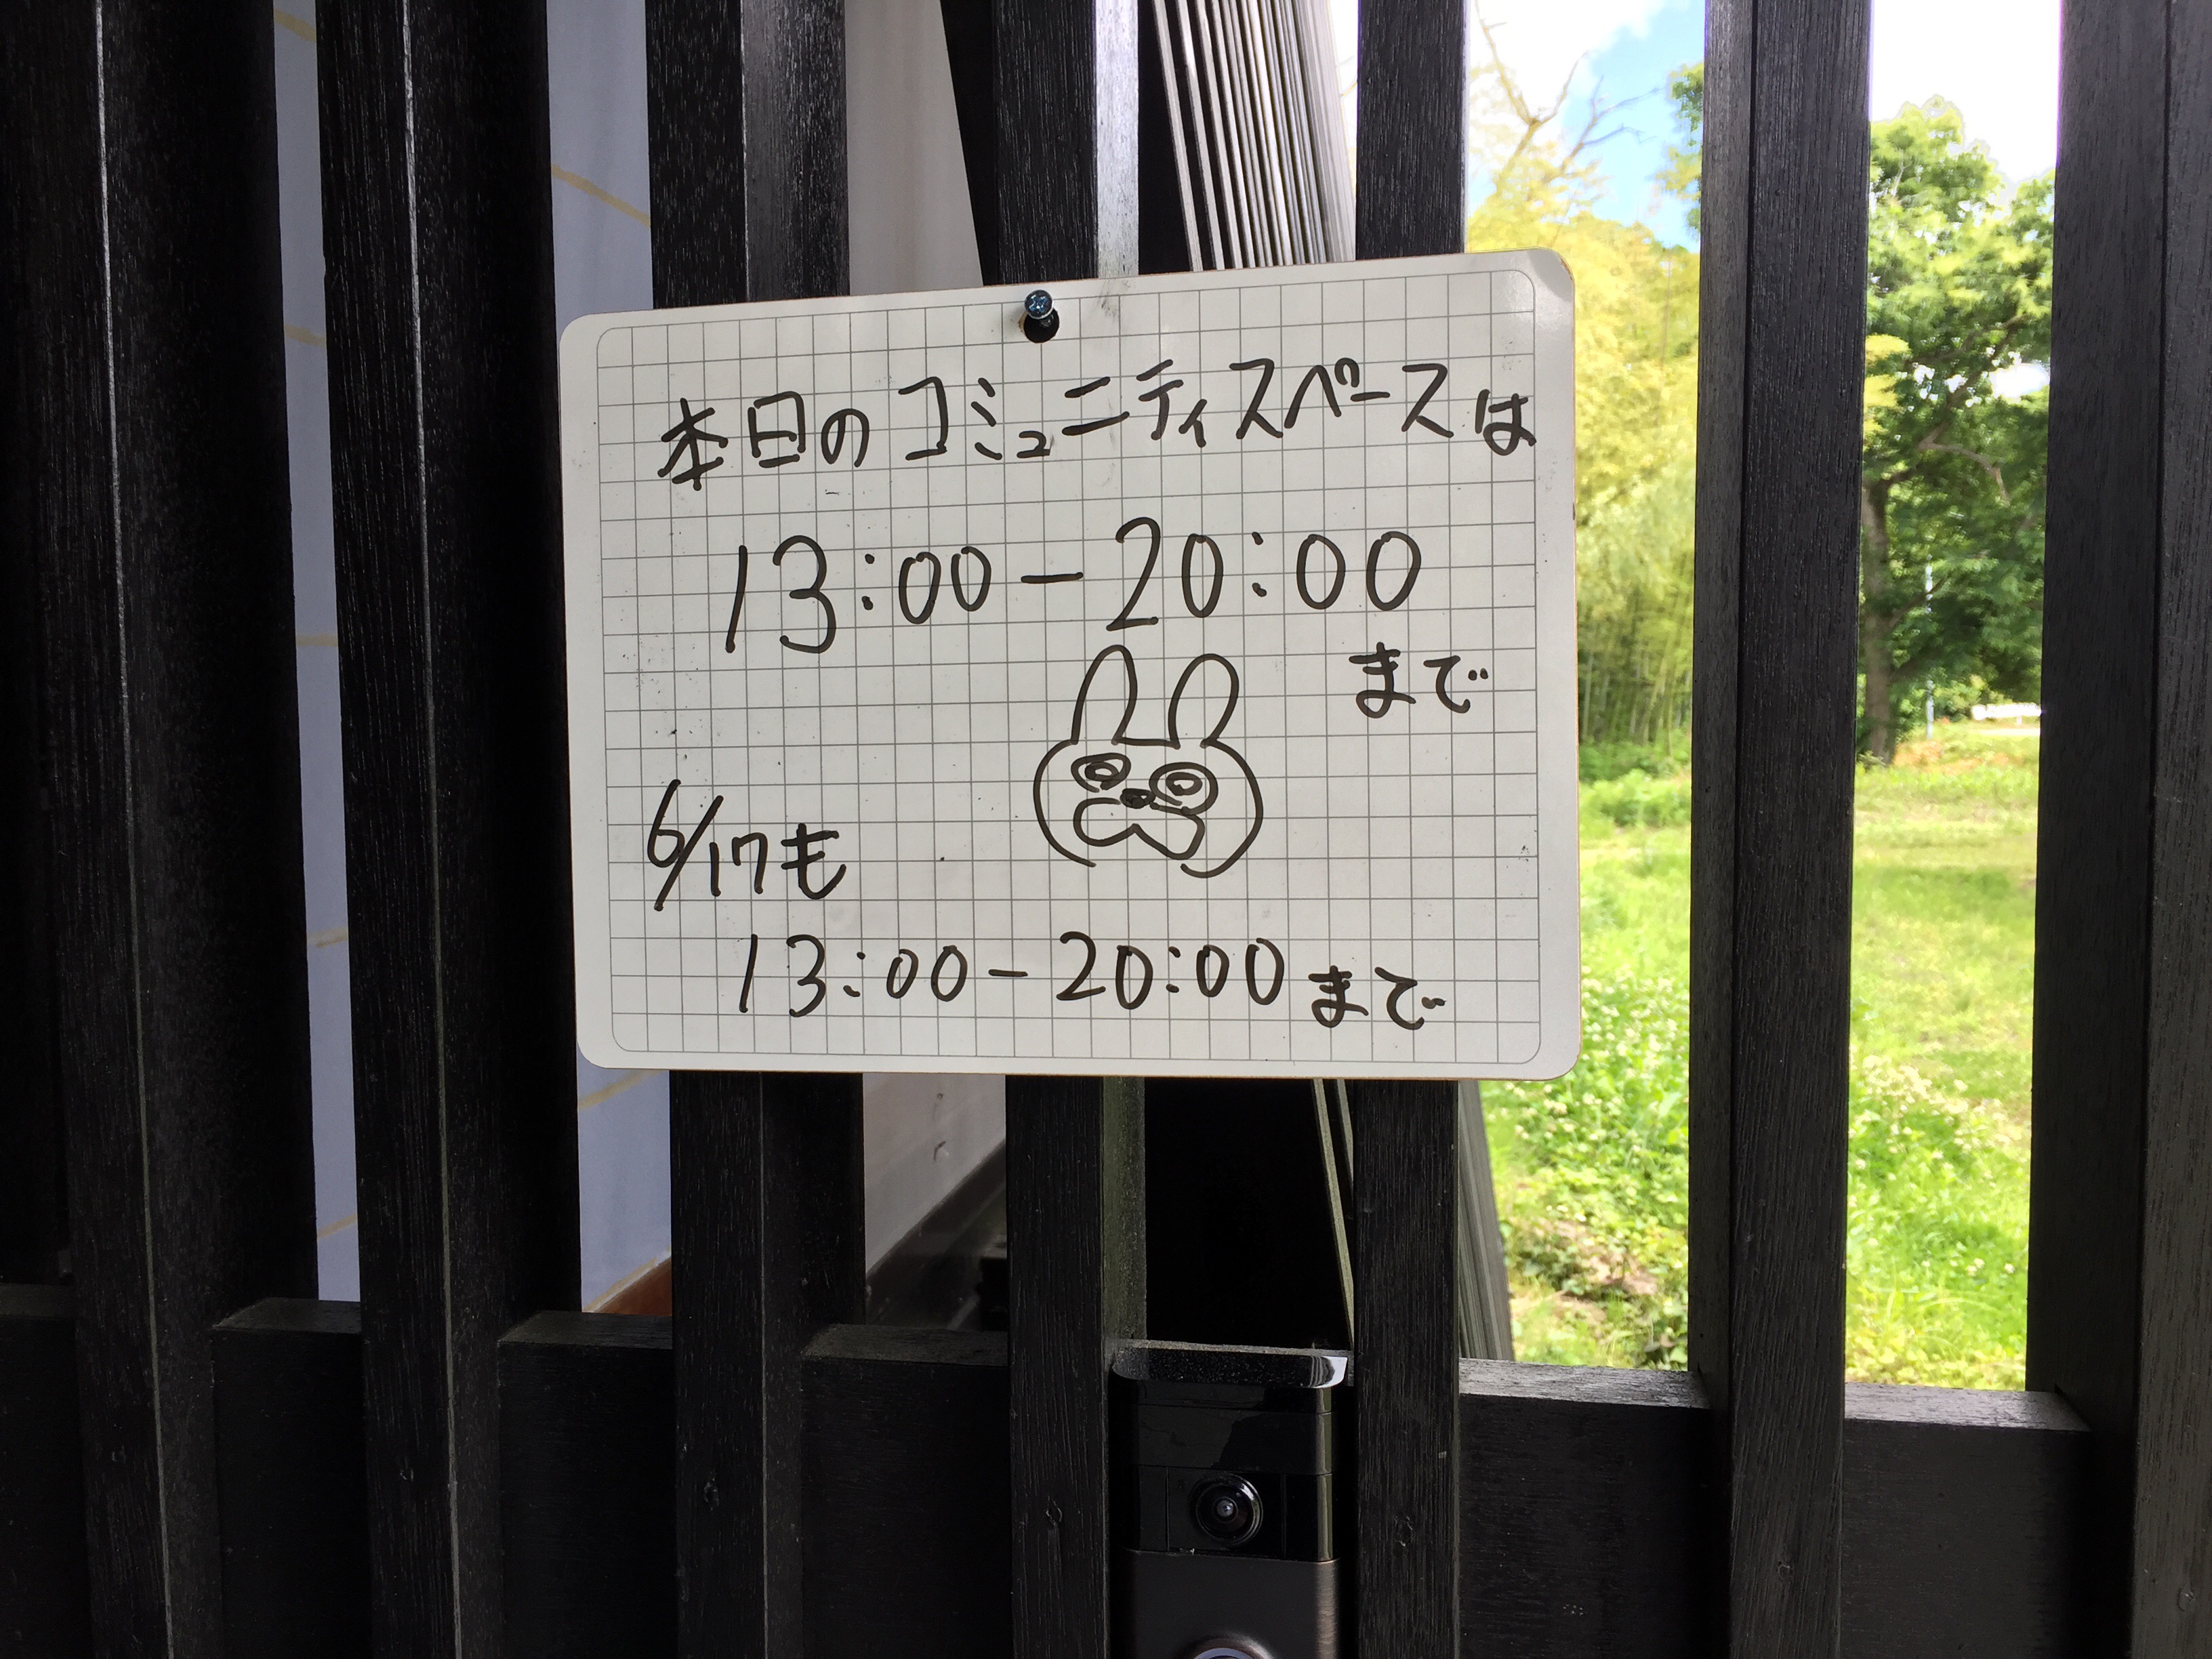 本日のコミュニティスペースは
13:00-20:00
まで
6/17も
13:00-20:00まで